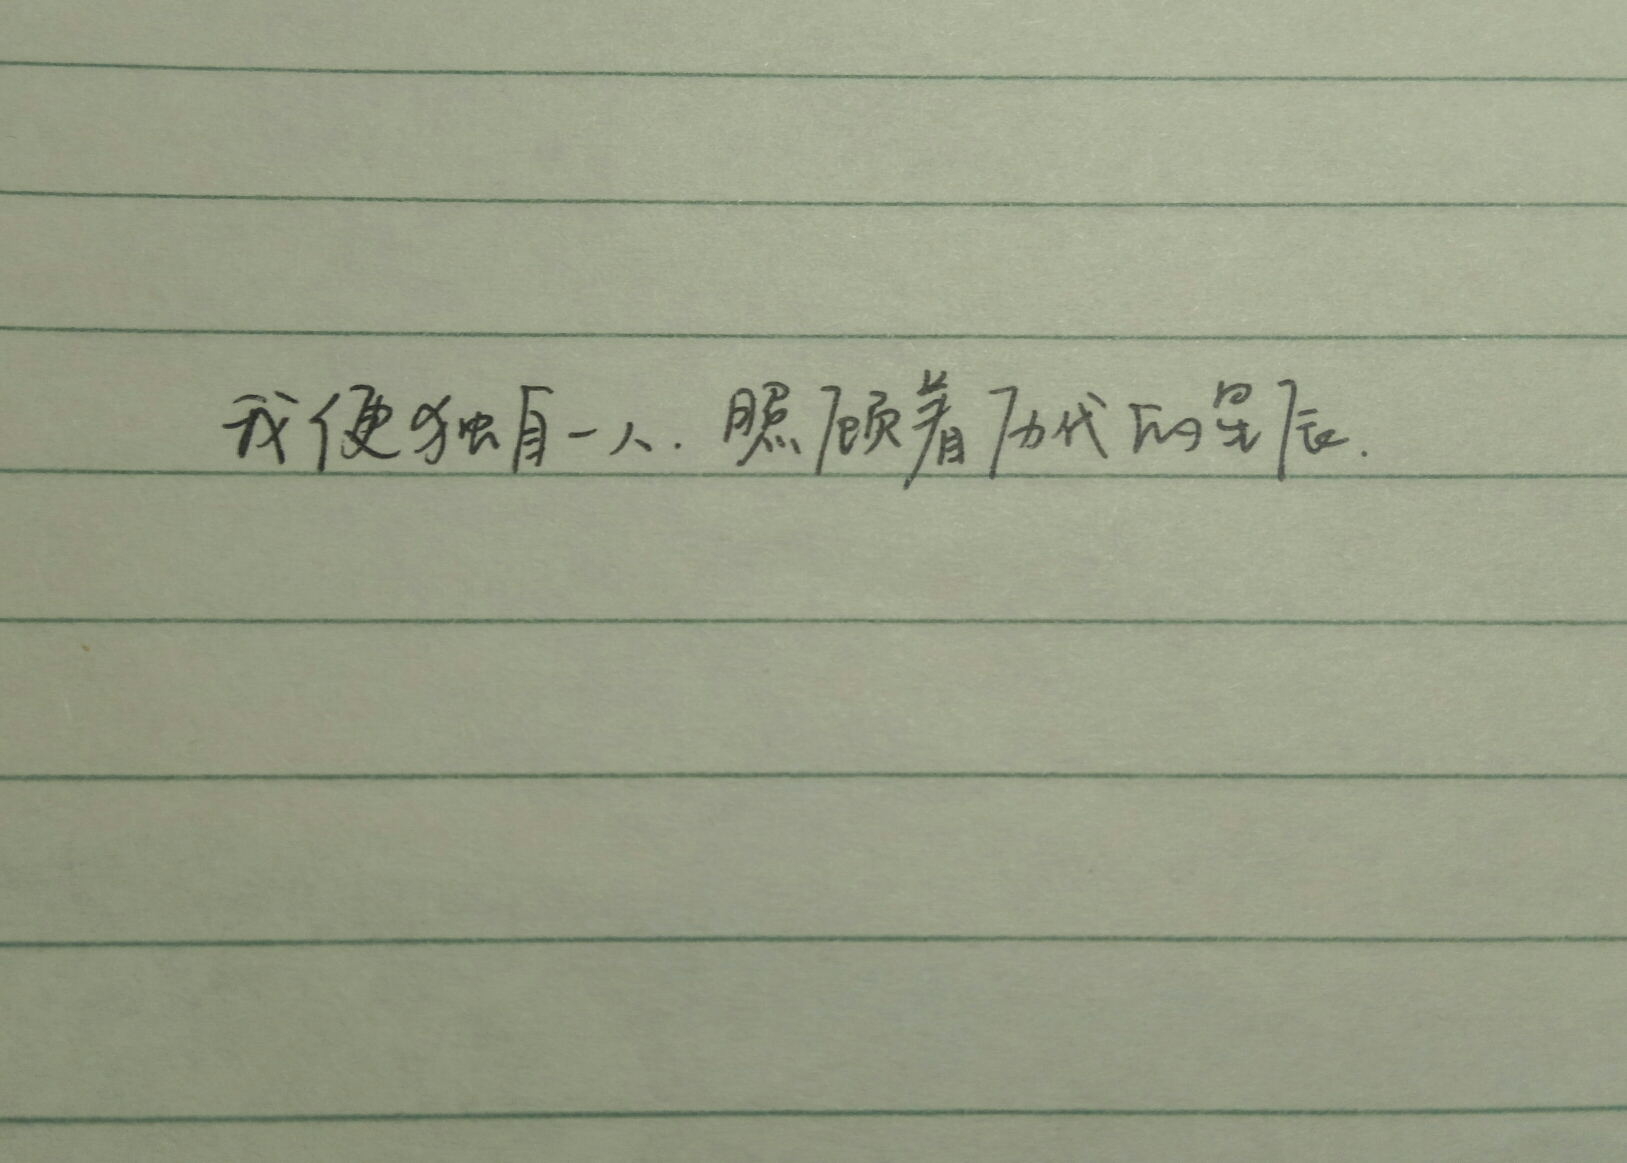 我便独自一人.照顾着历代的星辰.